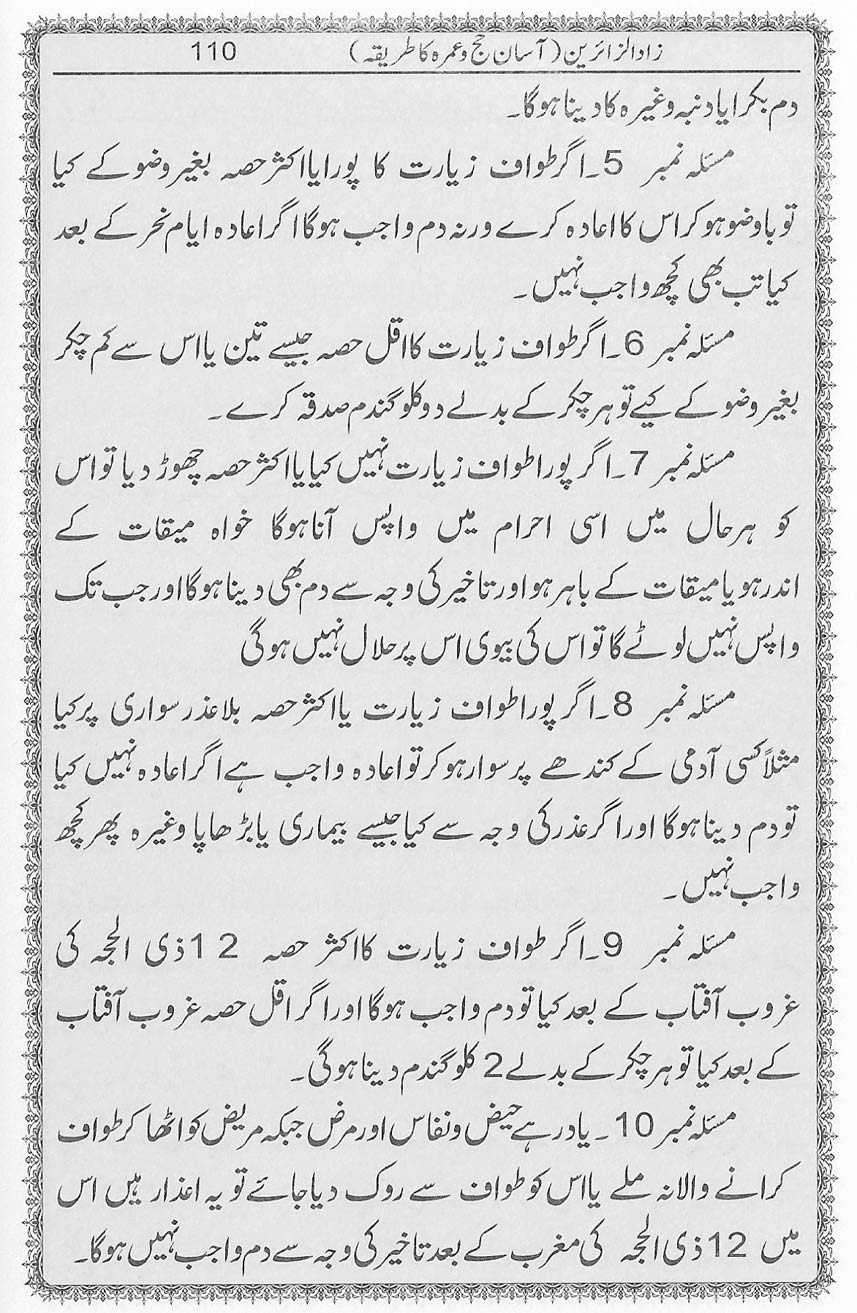 زاد الزائرین (آسان حج و عمرہ کا طریقہ) 110
دم بکرا یا دنبہ وغیرہ کا دینا ہوگا۔
مسئلہ نمبر 5۔ اگر طواف زیارت کا پورا یا اکثر حصہ بغیر وضو کے کیا
تو باوضو ہو کر اس کا اعادہ کرے ورنہ دم واجب ہوگا اگر اعادہ ایام نحر کے بعد
کیا تب بھی کچھ واجب نہیں۔
مسئلہ نمبر 6۔ اگر طواف زیارت کا اقل حصہ جیسے تین یا اس سے کم چکر
بغیر وضو کے کیے تو ہر چکر کے بدلے دو کلو گندم صدقہ کرے۔
مسئلہ نمبر 7۔ اگر پورا طواف زیارت نہیں کیا یا اکثر حصہ چھوڑ دیا تو اس
کو ہر حال میں اسی احرام میں واپس آنا ہوگا خواہ میقات کے
اندر ہو یا میقات کے باہر ہو اور تاخیر کی وجہ سے دم بھی دینا ہوگا اور جب تک
واپس نہیں لوٹے گا تو اس کی بیوی اس پر حلال نہیں ہوگی
مسئلہ نمبر 8۔ اگر پورا طواف زیارت یا اکثر حصہ بلا عذر سواری پر کیا
مثلاً کسی آدمی کے کندھے پر سوار ہو کر تو اعادہ واجب ہے اگر اعادہ نہیں کیا
تو دم دینا ہوگا اور اگر عذر کی وجہ سے کیا جیسے بیماری یا بڑھاپا وغیرہ پھر کچھ
واجب نہیں۔
مسئلہ نمبر 9۔ اگر طواف زیارت کا اکثر حصہ 12 ذی الحجہ کی
غروب آفتاب کے بعد کیا تو دم واجب ہوگا اور اگر اقل حصہ غروب آفتاب
کے بعد کیا تو ہر چکر کے بدلے 2 کلو گندم دینا ہوگی۔
مسئلہ نمبر 10۔ یاد رہے حیض و نفاس اور مرض جبکہ مریض کو اٹھا کر طواف
کرانے والا نہ ملے یا اس کو طواف سے روک دیا جائے تو یہ اعذار ہیں اس
میں 12 ذی الحجہ کی مغرب کے بعد تاخیر کی وجہ سے دم واجب نہیں ہوگا۔